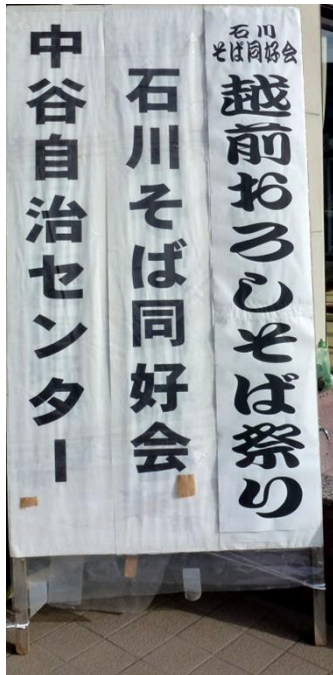 石川
そば同好会
越前おろしそば祭り
石川そば同好会
中谷自治センター